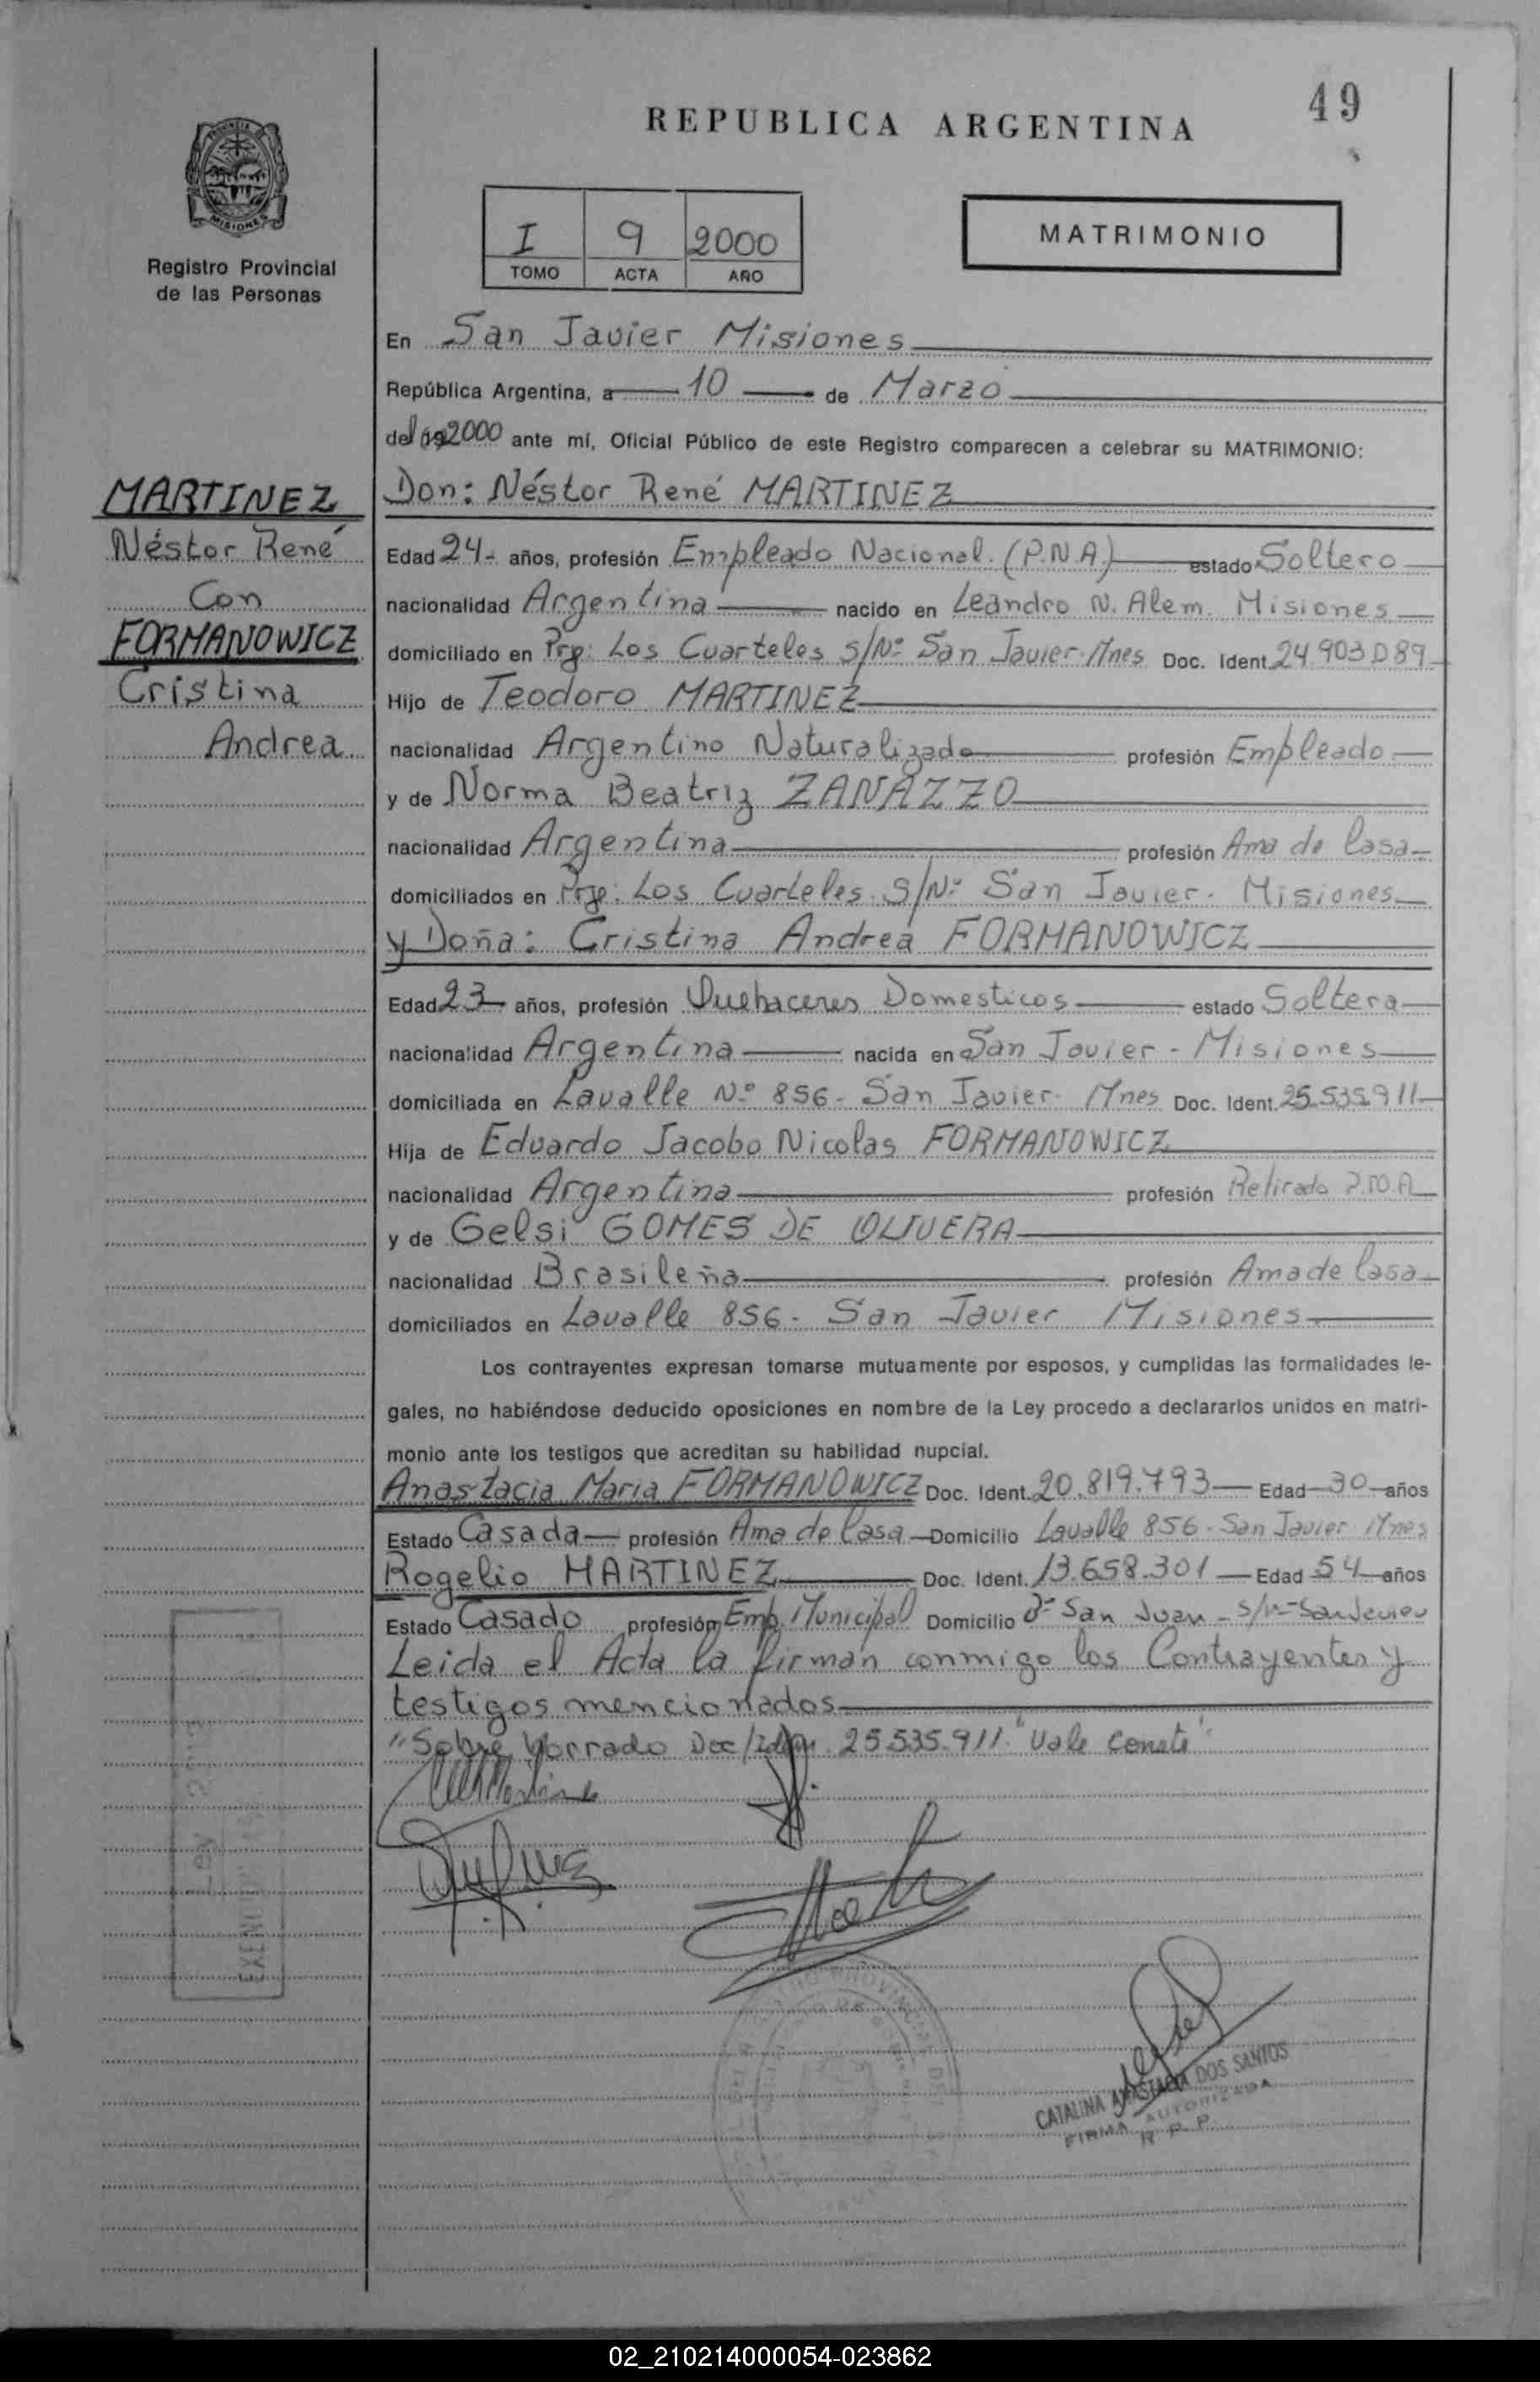 49
REPUBLICA ARGENTINA
PROVINCIA DE
MISIONES
Registro Provincial
de las Personas
I 9 2000
TOMO ACTA AÑO
MATRIMONIO
En San Javier Misiones
República Argentina, a 10 de Marzo
del 2000 ante mí, Oficial Público de este Registro comparecen a celebrar su MATRIMONIO:
MARTINEZ
Néstor René
Con
FORMANOWICZ
Cristina
Andrea
Don: Néstor René MARTINEZ
Edad 24- años, profesión Empleado Nacional. (P.N.A.) estado Soltero
nacionalidad Argentina nacido en Leandro N. Alem. Misiones
domiciliado en Los Cuarteles S/Nº San Javier-Mnes Doc. Ident. 24.903.089
Hijo de Teodoro MARTINEZ
nacionalidad Argentino Naturalizado profesión Empleado
y de Norma Beatriz ZANAZZO
nacionalidad Argentina profesión Ama de Casa
domiciliados en Los Cuarteles S/Nº San Javier. Misiones
y Doña: Cristina Andrea FORMANOWICZ
Edad 23 años, profesión Quehaceres Domesticos estado Soltera
nacionalidad Argentina nacida en San Javier - Misiones
domiciliada en Lavalle Nº 856- San Javier- Mnes Doc. Ident. 25.535.911
Hija de Eduardo Jacobo Nicolas FORMANOWICZ
nacionalidad Argentina profesión Retirado P.N.A
y de Gelsi GOMES DE OLIVERA
nacionalidad Brasileña profesión Ama de Casa
domiciliados en Lavalle 856- San Javier Misiones
Los contrayentes expresan tomarse mutuamente por esposos, y cumplidas las formalidades le-
gales, no habiéndose deducido oposiciones en nombre de la Ley procedo a declararlos unidos en matri-
monio ante los testigos que acreditan su habilidad nupcial.
Anastacia Maria FORMANOWICZ Doc. Ident. 20.819.793 Edad 30 años
Estado Casada profesión Ama de Casa Domicilio Lavalle 856- San Javier Mnes
Rogelio MARTINEZ Doc. Ident. 13.658.301 Edad 54 años
Estado Casado profesión Emp. Municipal Domicilio Bº San Juan - s/nº San Javier
Leida el Acta la firman conmigo los Contrayentes y
testigos mencionados
"Sobre borrado Doc/Iden. 25.535.911 "Vale conste"
CATALINA ANASTACIA DOS SANTOS
FIRMA AUTORIZADA
R. P. P.
02_210214000054-023862